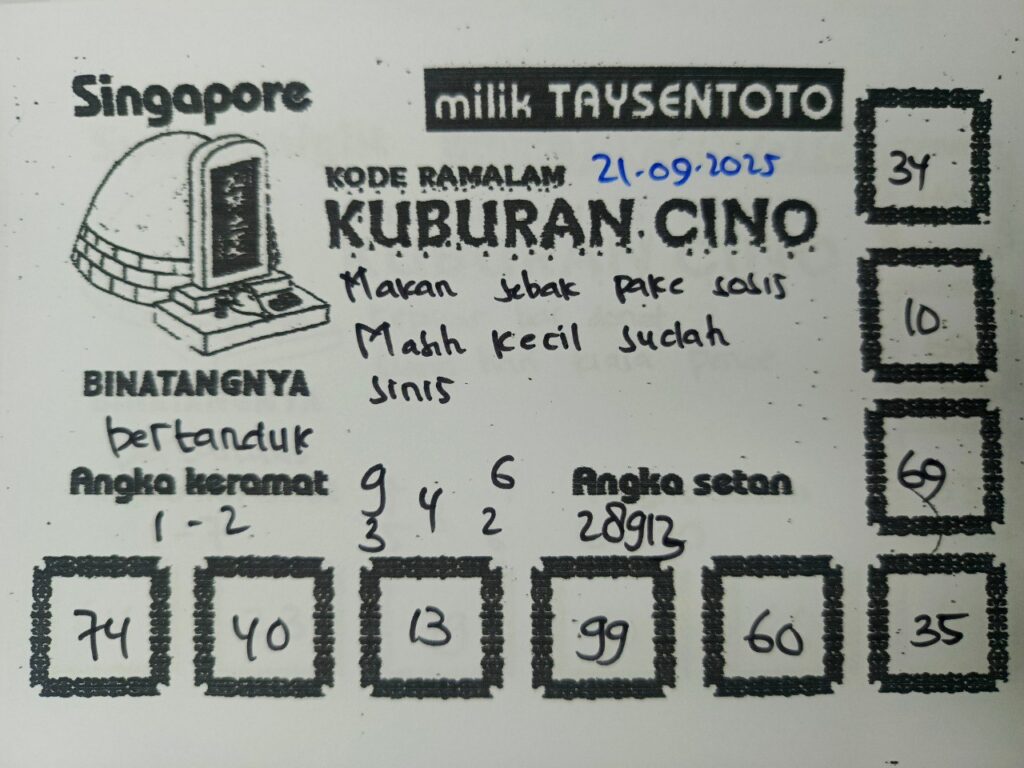 Singapore
milik TAYSENTOTO
KODE RAMALAM 21-09-2025
KUBURAN CINO
Makan sebak pake sosis
Masih kecil sudah
sinis
BINATANGNYA
bertanduk
Angka keramat
1 - 2
9 4 6
3 2
Angka setan
28913
34
10
69
74 40 13 99 60 35